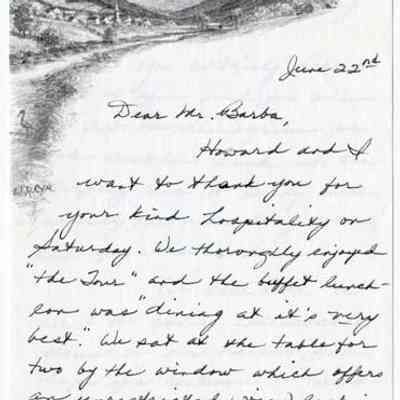 June 22nd
Dear Mr. Barba,
Howard and I
want to thank you for
your kind hospitality on
Saturday. We thoroughly enjoyed
"the Tour" and the buffet lunch-
eon was "dining at it's very
best." We sat at the table for
two by the window which offers
an unrestricted view